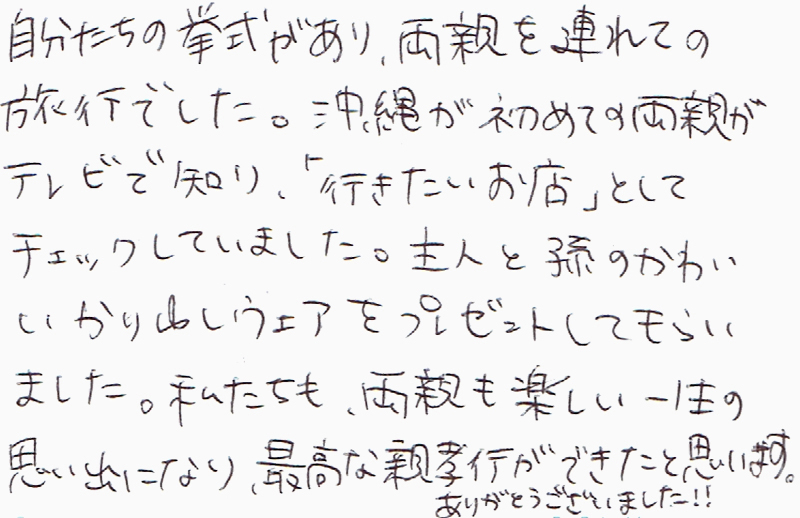 自分たちの挙式があり、両親を連れての
旅行でした。沖縄が初めての両親が
テレビで知り、「行きたいお店」として
チェックしていました。主人と孫のかわい
いかりゆしウェアをプレゼントしてもらい
ました。私たちも、両親も楽しい一生の
思い出になり、最高な親孝行ができたと思います。
ありがとうございました!!